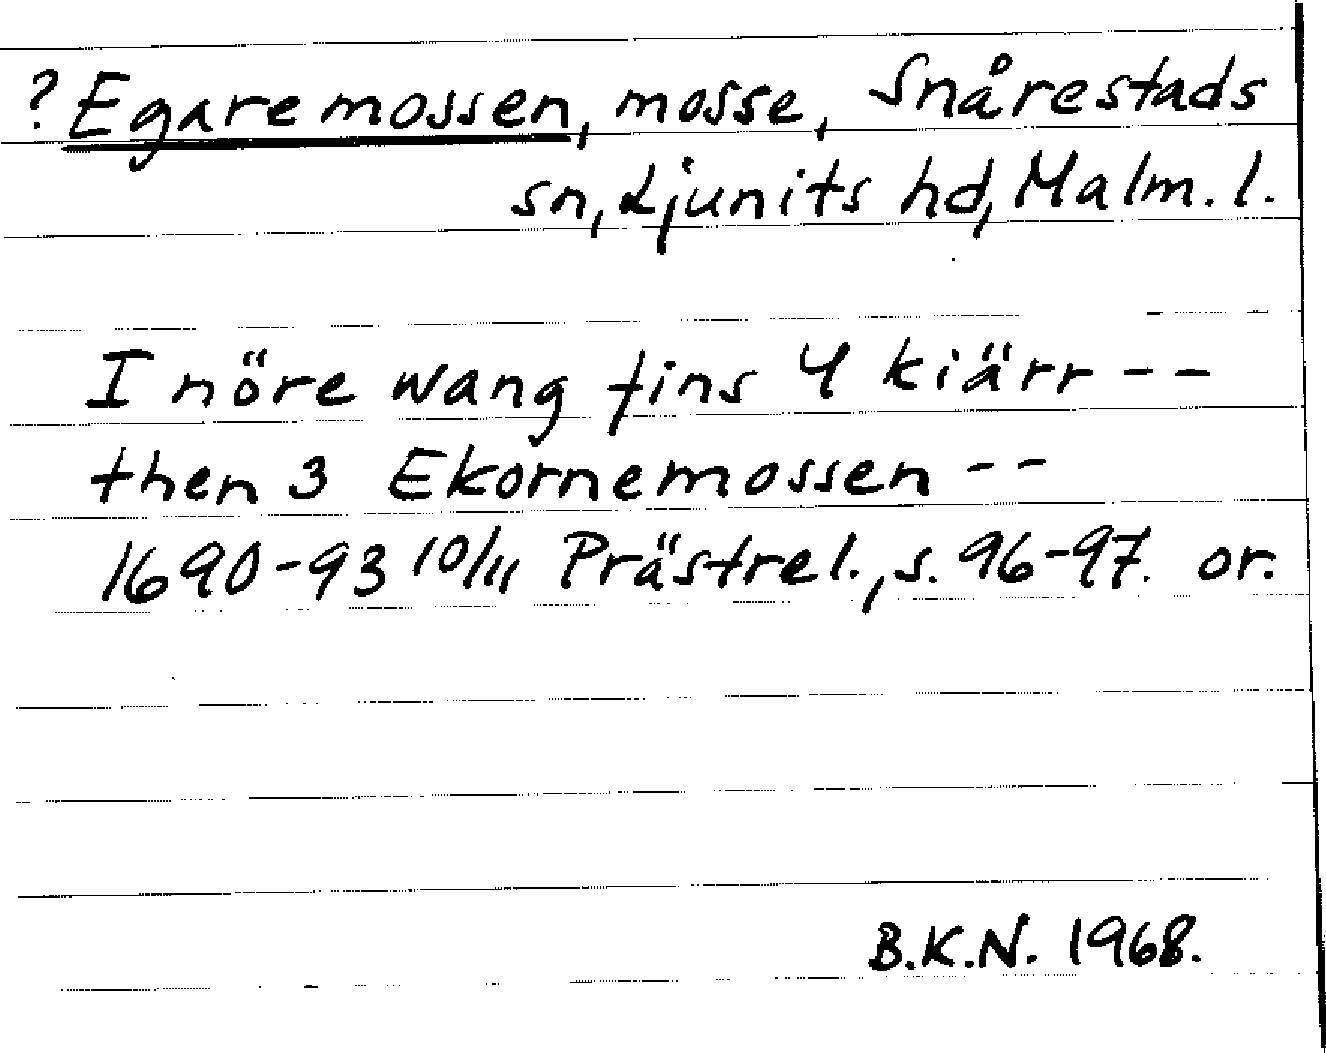 ? Egaremossen, mosse, Snårestads
sn, Ljunits hd, Malm. l.
I nöre wang fins 4 kiärr - -
then 3 Ekornemossen - -
1690-93 10/11 Prästrel., s. 96-97. or.
B.K.N. 1968.